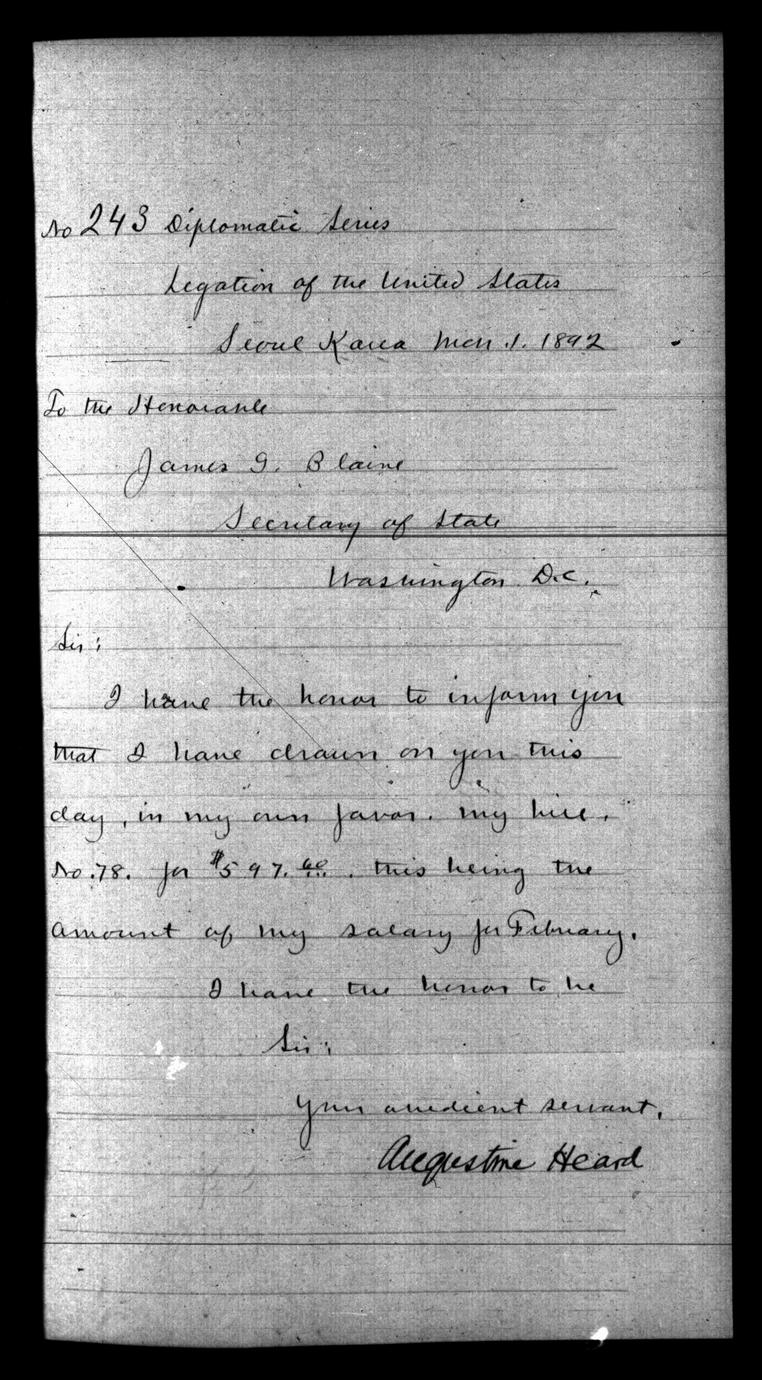 No 243 Diplomatic Series
Legation of the United States
Seoul Korea Mch. 1. 1892
To the Honorable
James G. Blaine
Secretary of State
Washington D.C.
Sir:
I have the honor to inform you
that I have drawn on you this
day, in my own favor. my bill,
No. 78. for $597.60. this being the
amount of my salary for February.
I have the honor to be
Sir:
Your obedient servant,
Augustine Heard